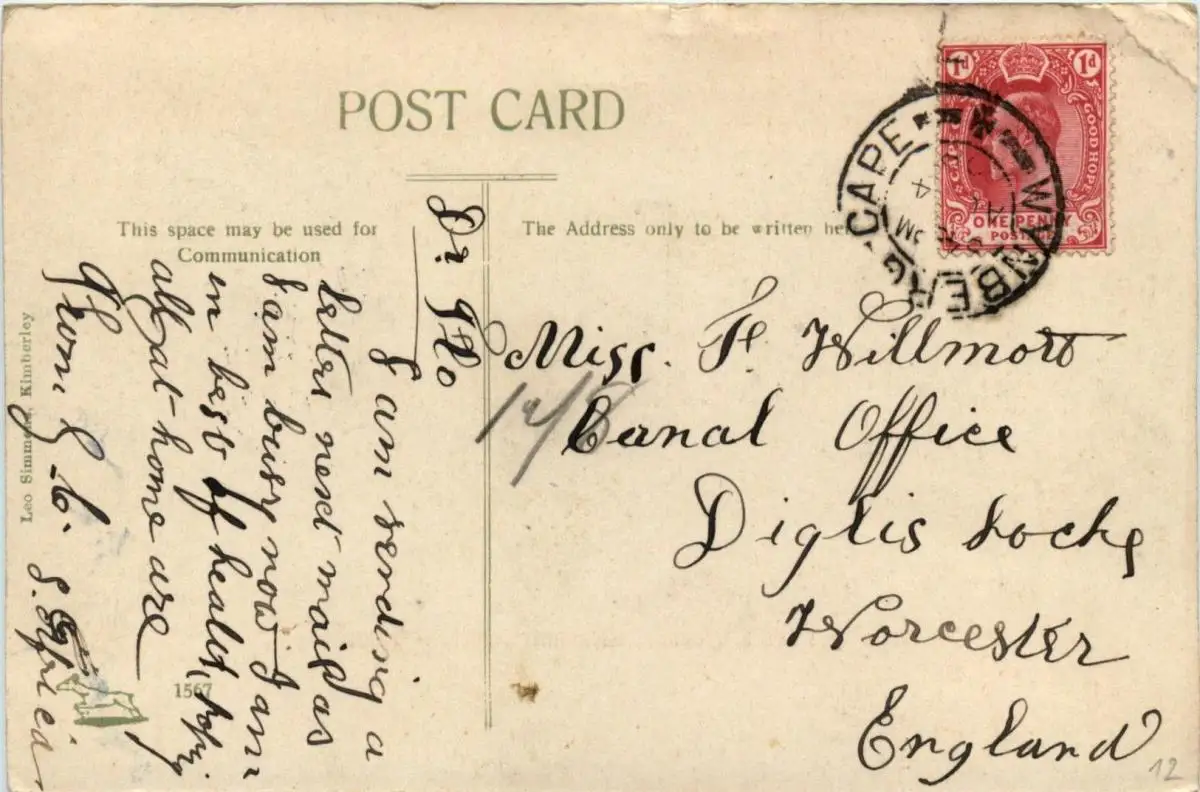 POST CARD
This space may be used for
Communication
The Address only to be written he
Dr. Flo
I am sending a
letter next mail as
I am busy now I am
in best of health, hope
all at home are
From L. C.
S. Africa
Miss. F. Willmott
Canal Office
Diglis Locks
Worcester
England
Leo Simmons, Kimberley
1567
1d 1d
CAPE GOOD HOPE
ONE PENNY
POSTAGE
WYNBERG · CAPE
12